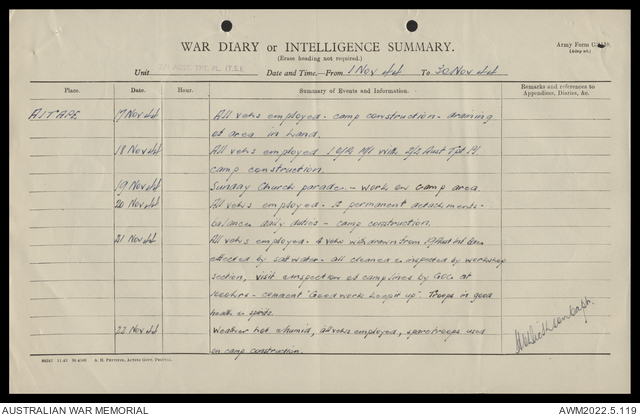 WAR DIARY OR INTELLIGENCE SUMMARY.
(Erase heading not required.)
Army Form
Unit
Date and Time.—From 1 Nov 44 To 30 Nov 44
Place. Date Hour. Summary of Events and Information. Remarks and references to Appendices, Diaries, &c.
AITAPE 17 Nov 44 All vehs employed - camp construction - draining
of area in hand.
18 Nov 44 All vehs employed with 2/2 Aust Tpt Pl
camp construction.
19 Nov 44 Sunday Church parade - work on camp area.
20 Nov 44 All vehs employed. permanent detachments -
balance daily duties - camp construction.
21 Nov 44 All vehs employed. vehs withdrawn from 19 Aust Inf
effected by salt water - all cleaned & inspected by workshop
section, visit & inspection of camp lines by GOC at
- comment "Good work keep it up". Troops in good
health & spirits.
22 Nov 44 Weather hot & humid, all vehs employed, spare troops used
on camp construction.
Capt.
A. H. PETTIFER, ACTING GOVT. PRINTER.
AUSTRALIAN WAR MEMORIAL
AWM2022.5.119